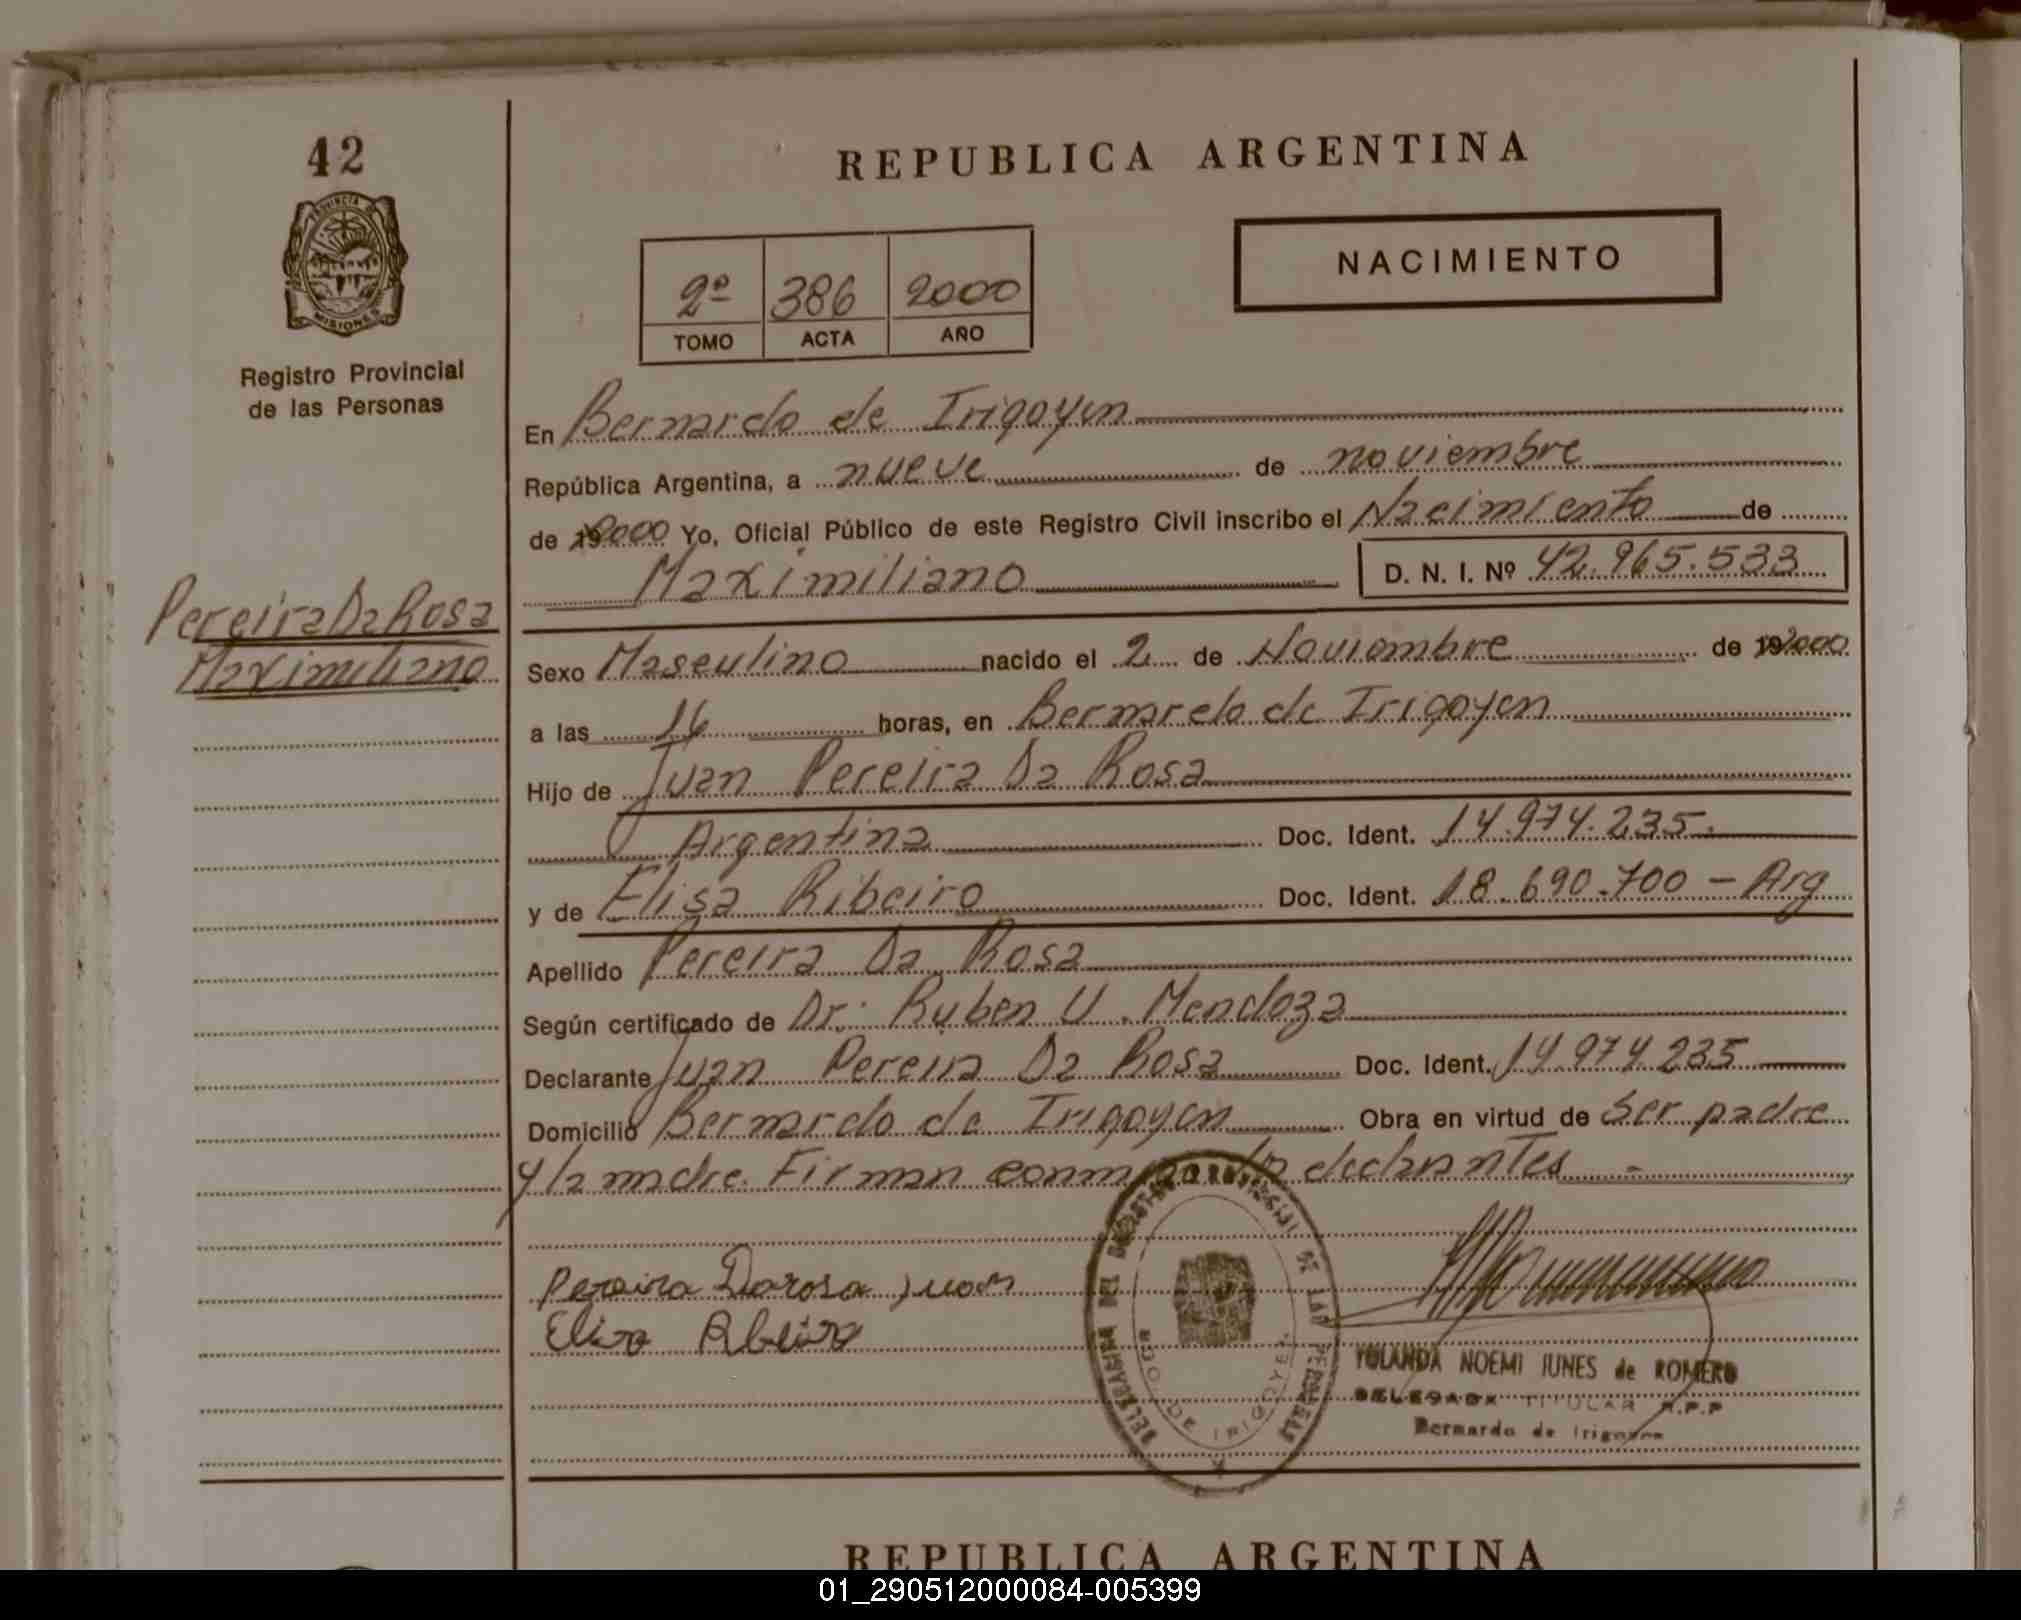 42
PROVINCIA DE
MISIONES
Registro Provincial
de las Personas
Pereira Da Rosa
Maximiliano
REPUBLICA ARGENTINA
2º 386 2000
TOMO ACTA AÑO
NACIMIENTO
En Bernardo de Irigoyen
República Argentina, a nueve de noviembre
de 2000 Yo, Oficial Público de este Registro Civil inscribo el Nacimiento de
Maximiliano D. N. I. Nº 42.965.533
Sexo Masculino nacido el 2 de Noviembre de 2000
a las 16 horas, en Bernardo de Irigoyen
Hijo de Juan Pereira Da Rosa
Argentina Doc. Ident. 14.974.235.
y de Elisa Ribeiro Doc. Ident. 18.690.700 - Arg
Apellido Pereira Da Rosa
Según certificado de Dr. Ruben U. Mendoza
Declarante Juan Pereira Da Rosa Doc. Ident. 14.974.235
Domicilio Bernardo de Irigoyen Obra en virtud de Ser padre
y la madre. Firman
Pereira Darosa Juan
DELEGACION DEL REGISTRO PROVINCIAL DE LAS PERSONAS
BDO. DE IRIGOYEN
YOLANDA NOEMI IUNES de ROMERO
DELEGADA TITULAR R.P.P
Bernardo de Irigoyen
REPUBLICA ARGENTINA
01_290512000084-005399